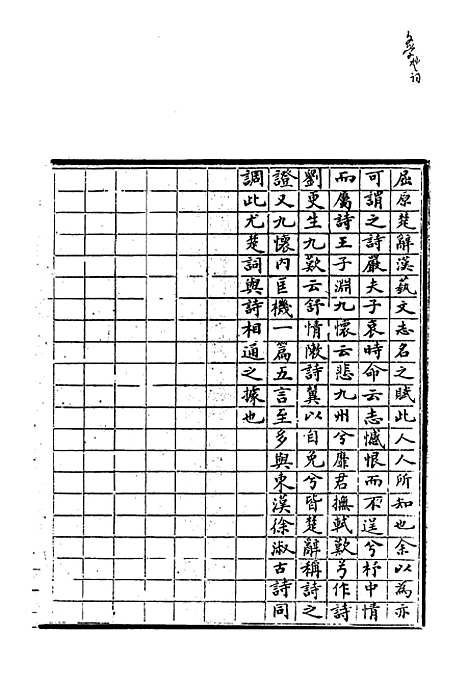 屈原楚辭漢藝文志名之賦此人人所知也余以為亦
可謂之詩嚴夫子哀時命云志憾恨而不逞兮杼中情
而屬詩王子淵九懷云悲九州兮靡君撫軾歎兮作詩
劉更生九歎云舒情敶詩冀以自免兮皆楚辭稱詩之
證又九懷内匡機一篇五言至多與東漢徐淑古詩同
調此尤楚詞與詩相通之據也